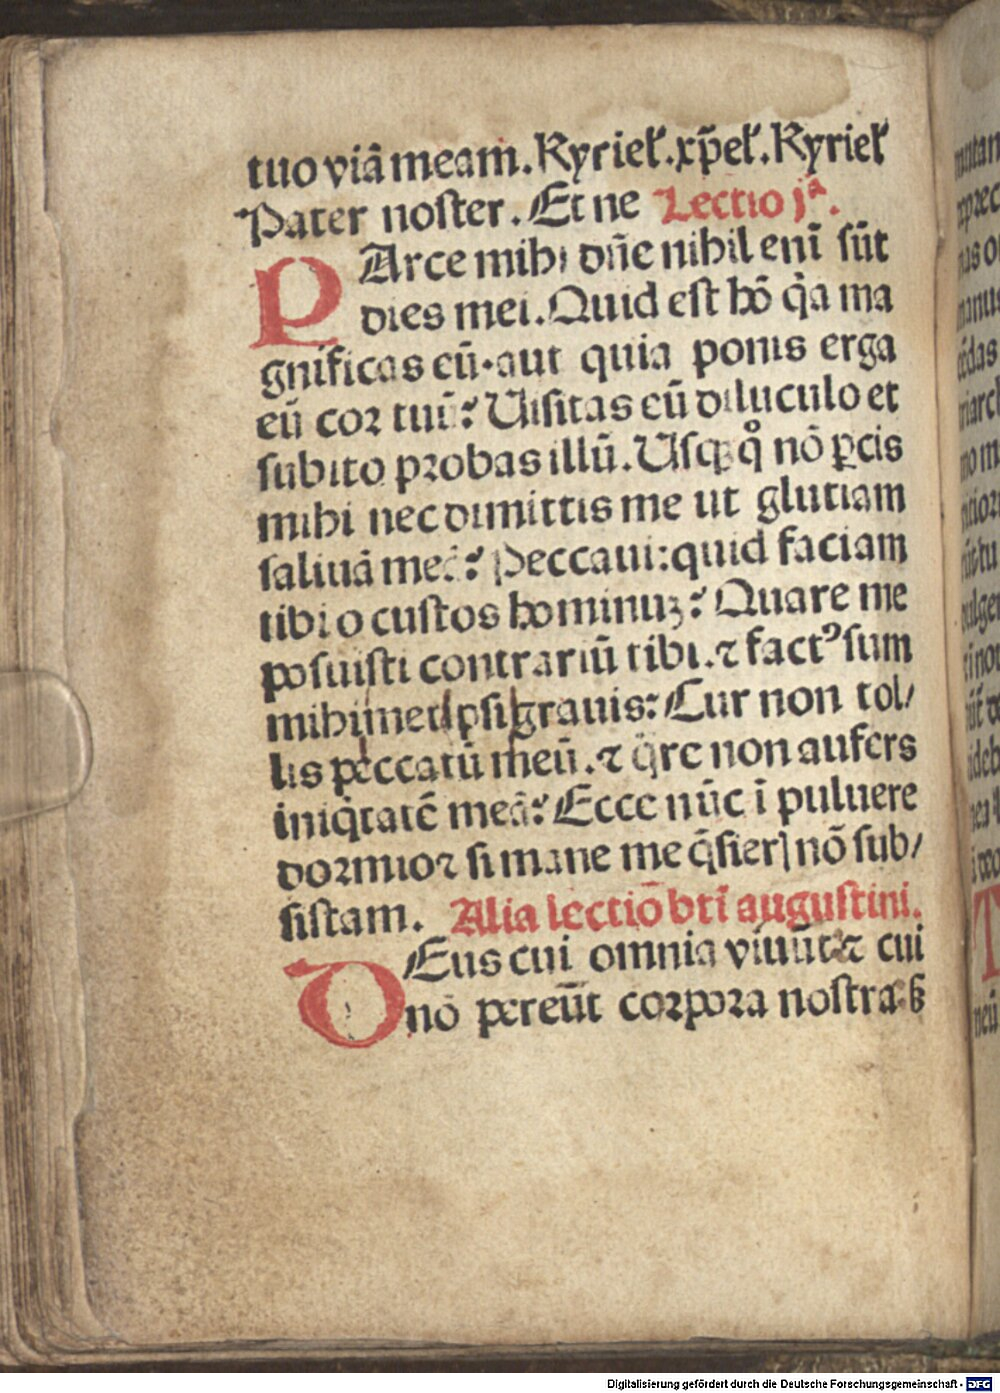 tuo viā meam. Kyrieł. xp̄eł. Kyrieł
Pater noster. Et ne Lectio jª.
PArce mihi dn̄e nihil enī sūt
dies mei. Quid est hō q̄a ma
gnificas eū. aut quia ponis erga
eū cor tuū? Uisitas eū diluculo et
subito probas illū. Usqꝫ qͦ nō ꝑcis
mihi nec dimittis me ut glutiam
saliuā meā? Peccaui: quid faciam
tibi o custos hominuꝫ? Quare me
posuisti contrariū tibi. ⁊ factꝰ sum
mihimetipsi grauis? Cur non tol/
lis peccatū meū. ⁊ q̄re non aufers
iniq̇tatē meā? Ecce nūc ī puluere
dormio ⁊ si mane me q̄sierſ nō sub/
sistam. Alia lectiō bt̄i augustini.
DEus cui omnia viuūt ⁊ cui
nō pereūt corpora nostra ß
Digitalisierung gefördert durch die Deutsche Forschungsgemeinschaft - DFG